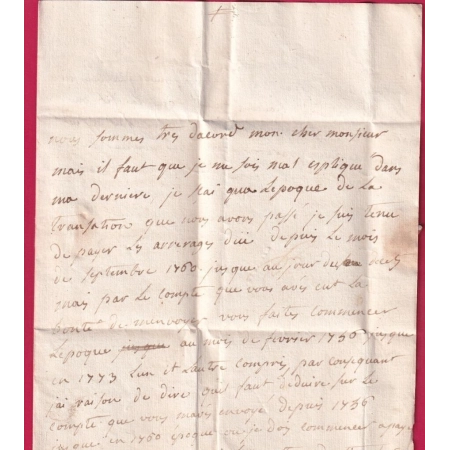 nous sommes tres dacord mon cher monsieur
mais il faut que je me sois mal esplique dans
ma derniere je scai qua Lepoque de La
transation que nous avons passe je suis tenu
de payer les arrerages dûe depuis Le mois
de septembre 1760 jusque au jour
mais par Le compte que vous aves eut La
bonté de menvoyer vous faites commencer
Lepoque jusque au mois de fevrier 1756 jusque
en 1773 Lun et Lautre compris, par consequant
jai raison de dire quil faut deduire sur Le
compte que vous maves envoyé depuis 1756
jusque en 1760 epoque ou je dois commencer a paye